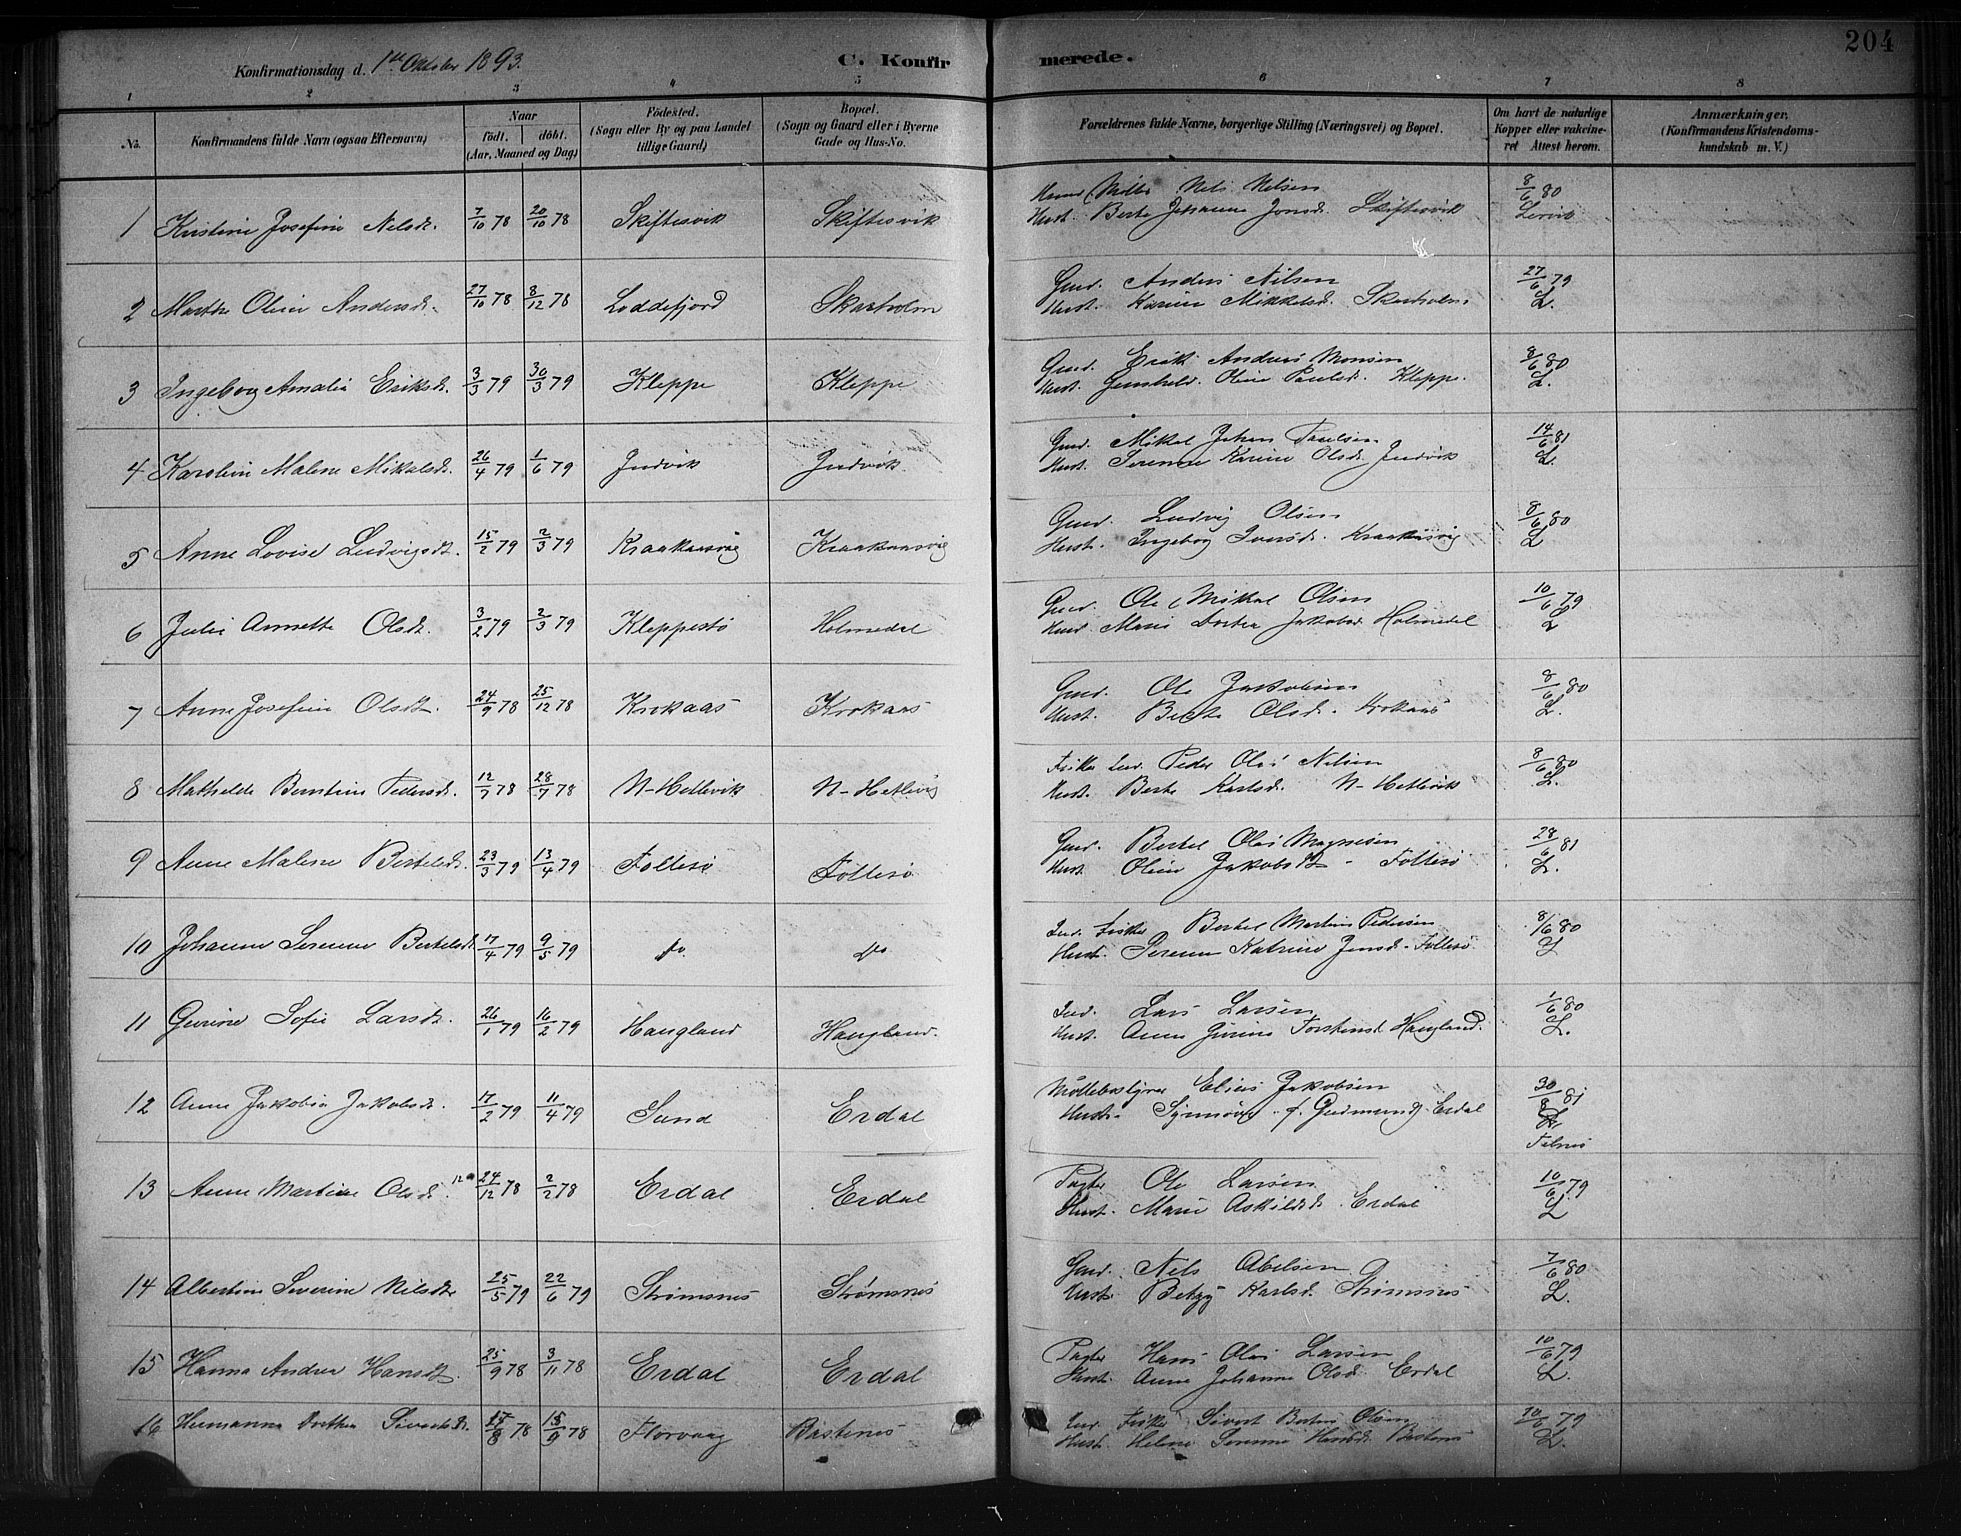 204
Konfirmationsdag d. 1ste Oktober 1893.
C. Konfirmerede.
1 2 3 4 5 6 7 8
No.
Konfirmandens fulde Navn (ogsaa Efternavn)
Naar
födt. döbt.
(Aar, Maaned og Dag)
Födested.
(Sogn eller By og paa Landet
tillige Gaard)
Bopæl.
(Sogn og Gaard eller i Byerne
Gade og Hus-No.
Forældrenes fulde Navne, borgerlige Stilling (Næringsvei) og Bopæl.
Om havt de naturlige
Kopper eller vakcine-
ret Attest herom.
Anmærkninger,
(Konfirmandens Kristendoms-
kundskab m. V.)
1 Kristine Josefine Nelsdt. 7/10 78 20/10 78 Skiftesvik Skiftesvik
Nels Nilsen
Hust. Berte Johanne Jonsd. Skiftesvik
8/6 80
Lervik
2 Marthe Oline Andersdt. 27/10 78 8/12 78 Loddefjord Skarholm
Gmd. Anders Nilsen
Hust. Karine Mikkelsd. Skarholm
27/6 79
L.
3 Ingeborg Amalie Eriksd. 3/3 79 30/3 79 Kleppe Kleppe
Gmd. Erik Andreas Monsen
Hust. Gunhild Oline Paulsd. Kleppe.
8/6 80
L.
4 Karoline Malene Mikalsd. 26/4 79 1/6 79 Judvik Judvik
Gmd. Mikal Johan Paulsen
Hust. Serene Karine Olsd. Judvik
14/6 81
L.
5 Anne Lovise Ludvigsdt. 15/2 79 2/3 79 Kraakaasvig Kraakaasvig
Gmd. Ludvig Olsen
Hust. Ingebog Iversd. Kraakaasvig
8/6 80
L
6 Julie Annette Olsdt. 3/2 79 2/3 79 Kleppestø Holmedal
Gmd. Ole Mikal Olsen
Marie Dortea Jakobsd Holmedal
10/6 79
L
7 Anne Josefine Olsdt. 24/9 78 25/12 78 Krokaas Krokaas
Gmd. Ole Jakobsen
Hust. Berte Olsd. Krokaas
8/6 80
L.
8 Mathilde Berntine Pedersd. 12/7 78 28/7 78 N-Hetlevik N-Hetlevig
Fisker Ind. Peder Olai Nilsen
Hust. Berte Karlsd. N-Hetlevik
8/6 80
L.
9 Anne Malene Bertelsd. 23/3 79 13/4 79 Follesø Follesø
Gmd. Bertel Olai Magnesen
Hust Oline Jakobsdt - Follesø
28/6 81
L.
10 Johanne Serene Bertelsdt. 17/4 79 9/5 79 do do
Ind. Fisker Bertel Martin Pedersen
Hust. Serene Katrine Jensd. Follesø
8/6 80
L
11 Gurine Sofie Larsdt. 26/1 79 16/2 79 Haugland Haugland.
Ind. Lars Larsen
Hust. Anne Gurine Torstensd. Haugland.
1/6 80
L.
12 Anne Jakobia Jakobsd. 17/2 79 11/4 79 Sund Erdal
Møllebestyrer Elias Jakobsen
Hust. Synnøve f. Gudmunds. Erdal
30/8 81
13 Anne Martine Olsd. 24/12 78 2/2 78 Erdal Erdal
Pagter Ole Larsen
Hust. Marie Askildsd. Erdal
10/6 79
L
14 Albertine Severine Nilsdt 25/5 79 22/6 79 Strømsnes Strømsnes
Gmd. Nels Abelsen
Hust. Betzy Karlsd. Strømsnes
7/6 80
L.
15 Hanna Andrea Hansdt. 25/9 78 3/11 78 Erdal Erdal
Pagter Hans Olai Larsen
Hust. Anne Johanne Olsd. Erdal
10/6 79
L.
16 Hermanna Dorthea Sivertsd. 27/8 78 15/9 78 Florvaag Bastenes
Ind. Fisker Sivert Olsen
Hust. Helene Serene Bastenes
20/6 79
L.